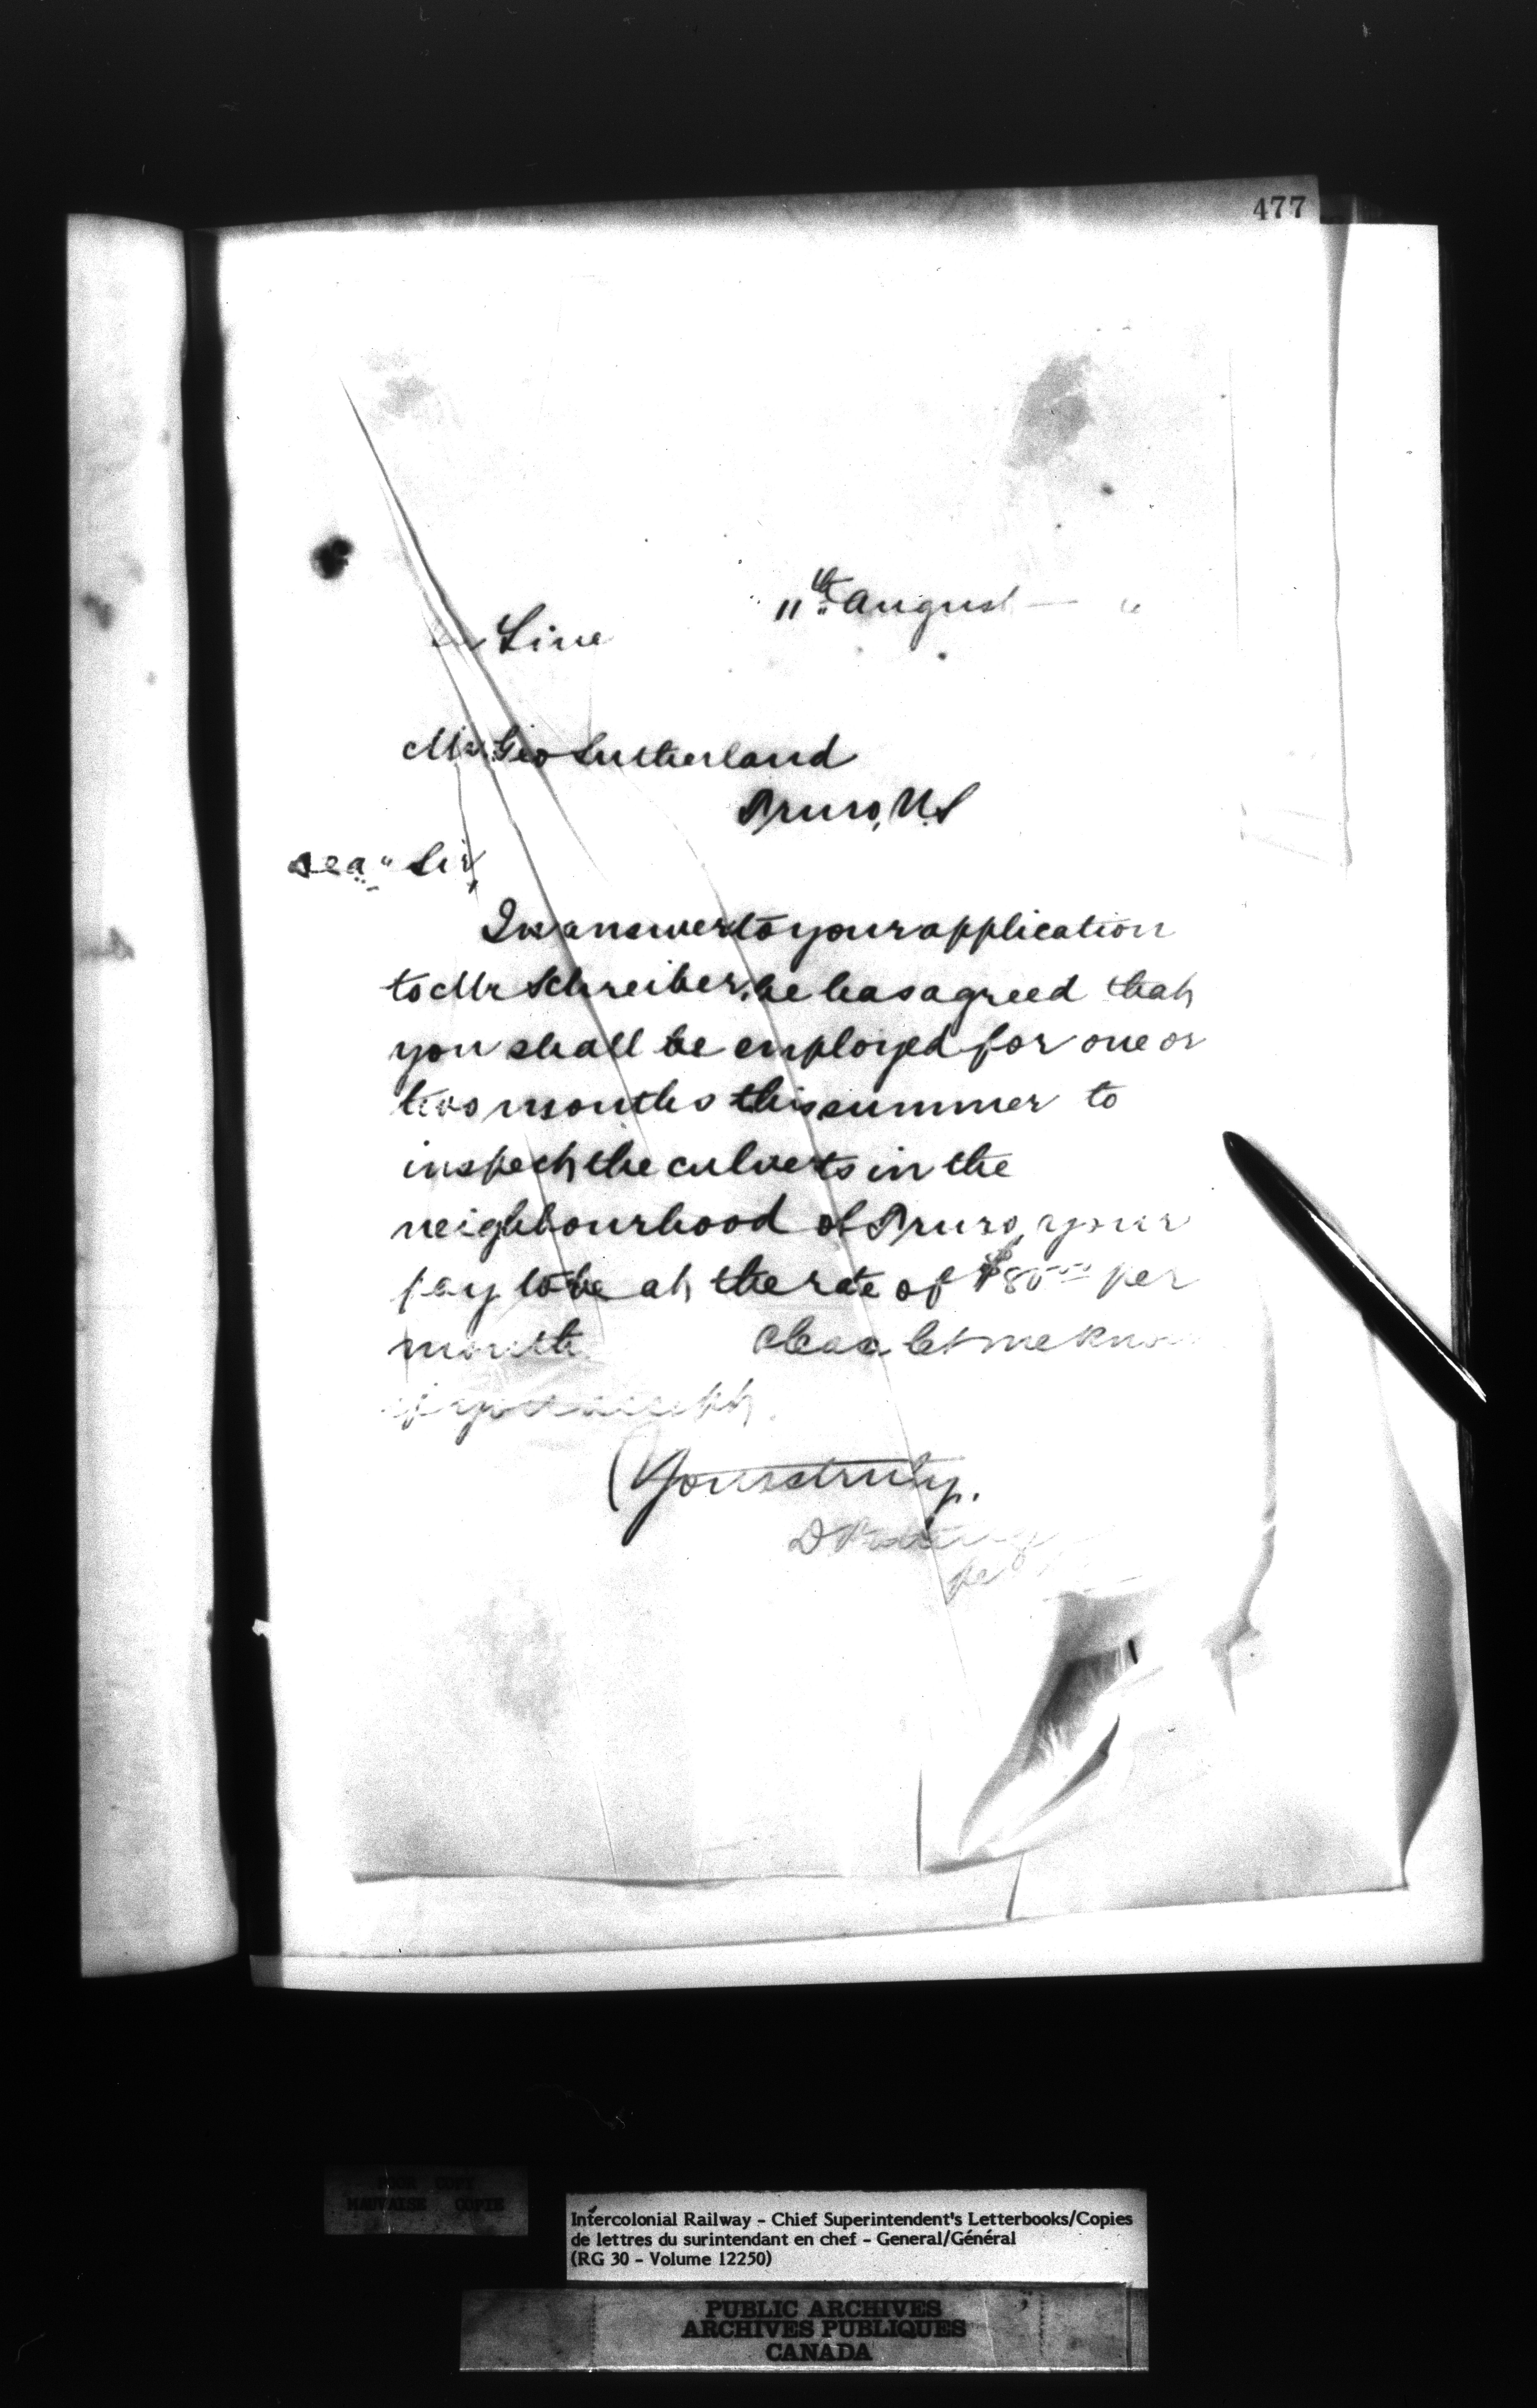 477
11th August
Line
Mr. Geo Sutherland
Truro, N.S
Dear Sir,
In answer to your application
to Mr Schreiber, he has agreed that
you shall be employed for one or
two months this summer to
inspect the culverts in the
neighbourhood of Truro, your
pay to be at the rate of $80 00 per
month Please let me know
if you accept.
Yours truly.
D Pottinger
POOR COPY
MAUVAISE COPIE
Intercolonial Railway - Chief Superintendent's Letterbooks/Copies
de lettres du surintendant en chef - General/Général
(RG 30 - Volume 12250)
PUBLIC ARCHIVES
ARCHIVES PUBLIQUES
CANADA